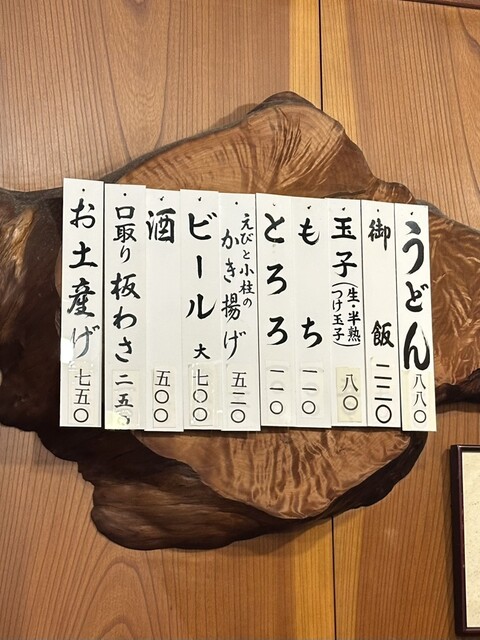 うどん 八八〇
御飯 二二〇
玉子(生・半熟 つけ玉子) 八〇
もち 一一〇
とろろ 一一〇
えびと小柱の かき揚げ 五二〇
ビール 大 七〇〇
酒 五〇〇
口取り 板わさ 二五〇
お土産げ 七五〇